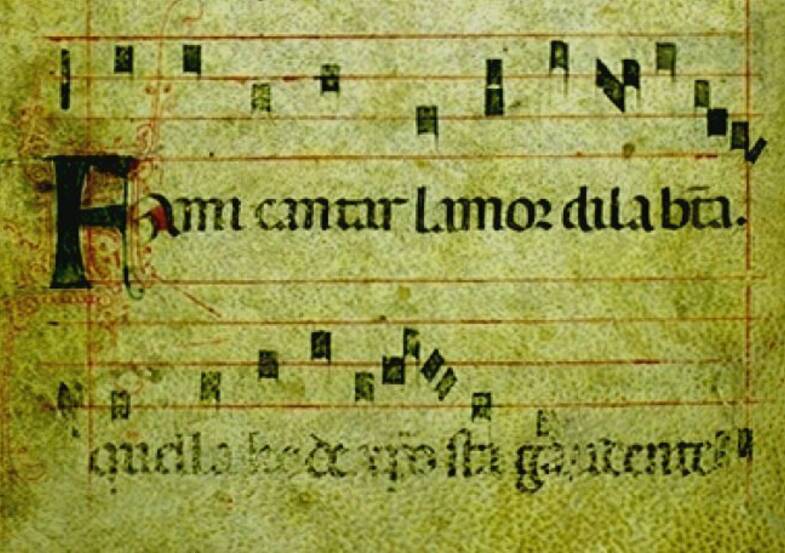 Fami cantar lamor dila bt̄a.
quella ke de xp̄o sta gaudente